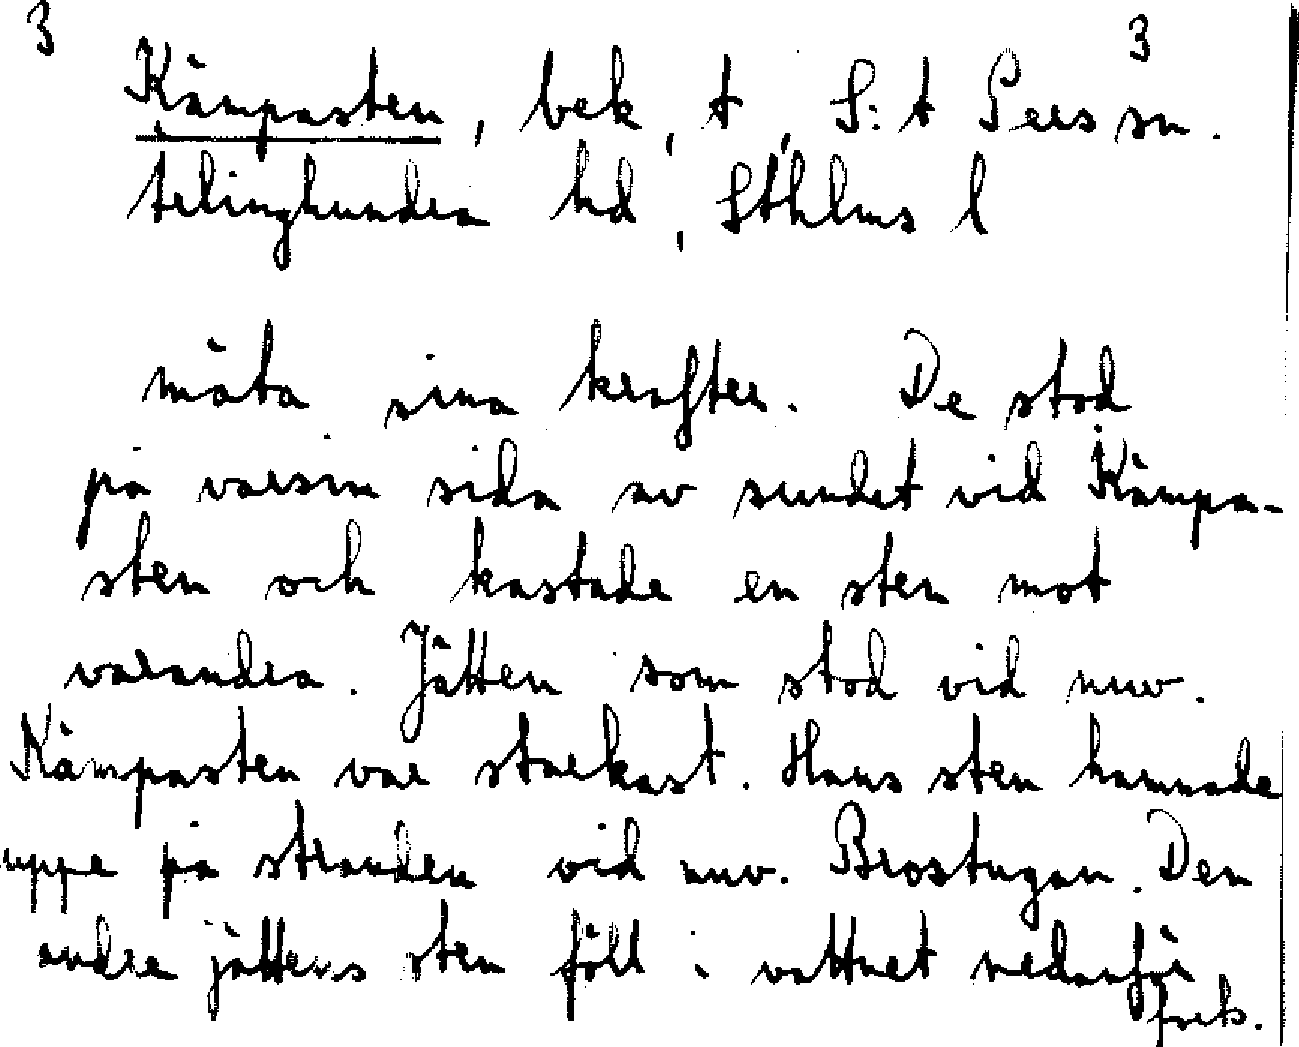 3 3
Kämpasten, bek, t, S:t Pers sn.
Ärlinghundra hd, Sthlms l
mäta sina krafter. De stod
på varsin sida av sundet vid Kämpa-
sten och kastade en sten mot
varandra. Jätten som stod vid nuv.
Kämpasten var starkast. Hans sten hamnade
uppe på stranden vid nuv. Brostugan. Den
andre jättens sten föll i vattnet nedanför
forts.